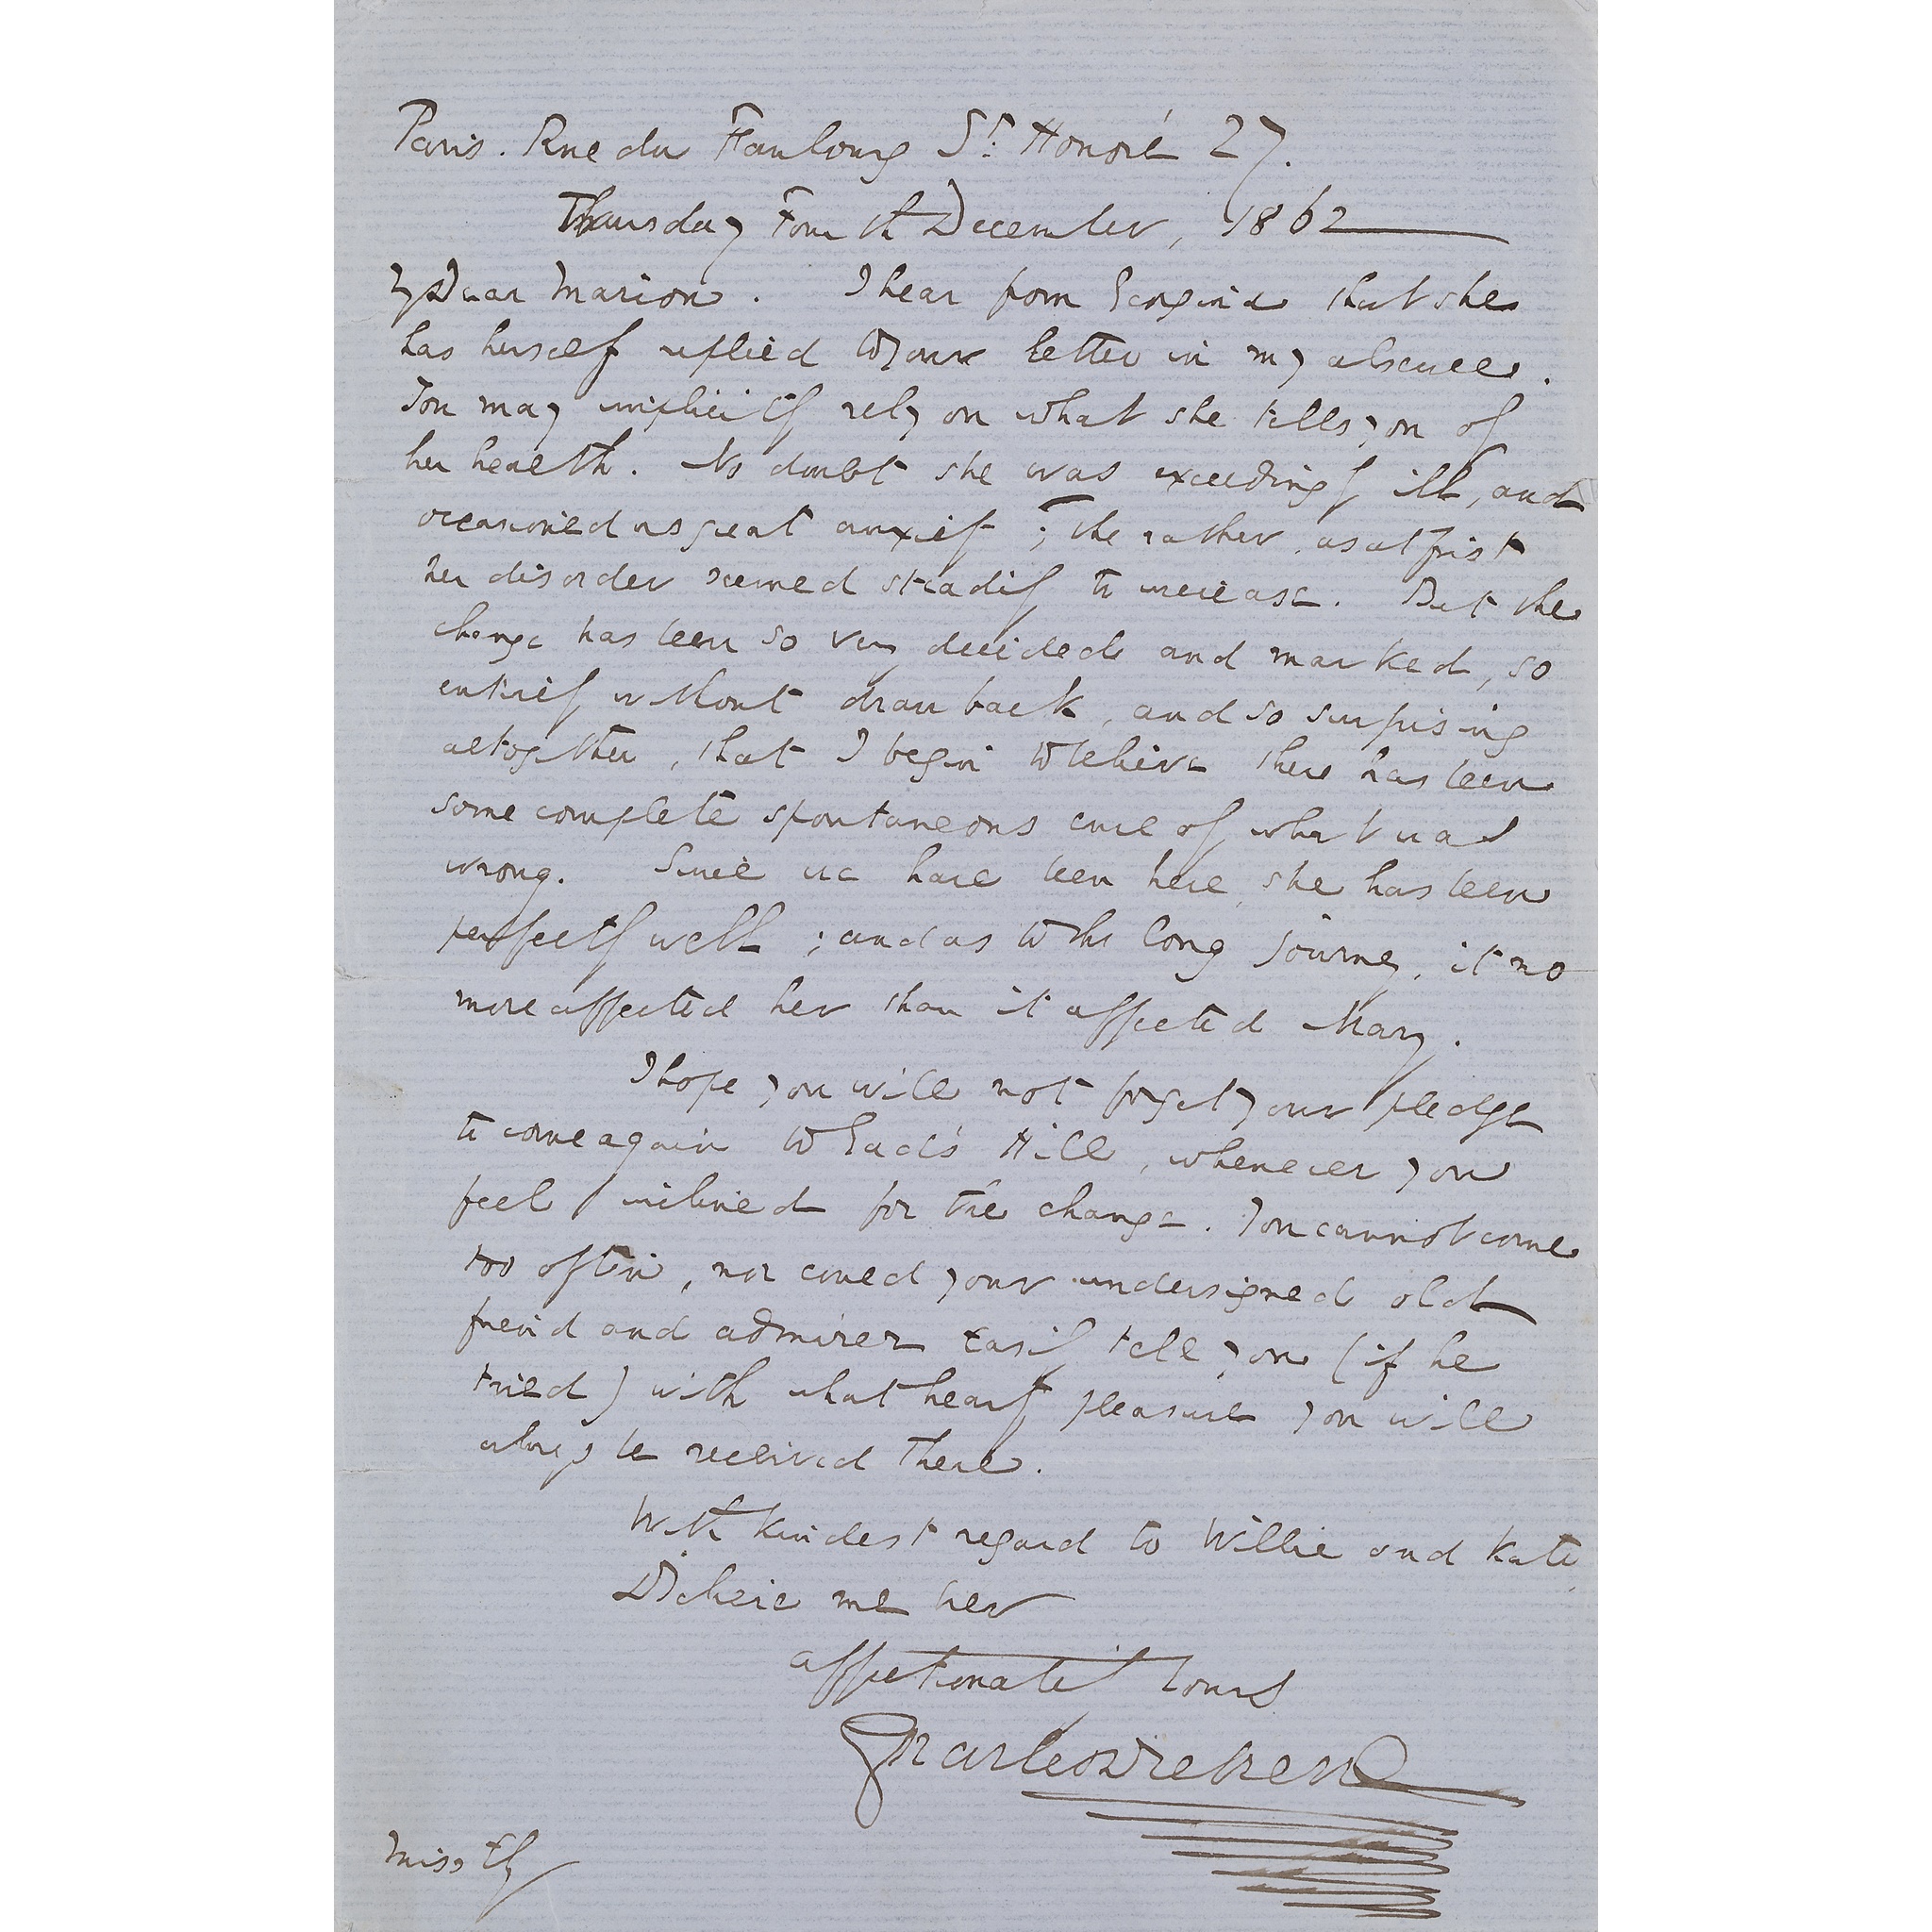 Paris. Rue du Faubourg St. Honoré 27.
Thursday Fourth December, 1862
My Dear Marion. I hear from Georgina that she
has herself replied to your letter in my absence.
You may implicitly rely on what she tells you of
her health. No doubt she was exceedingly ill, and
occasioned us great anxiety; the rather, as at first
her disorder seemed steadily to increase. But the
change has been so very decided and marked, so
entirely without drawback, and so surprising
altogether, that I begin to believe there has been
some complete spontaneous cure of what was
wrong. Since we have been here she has been
perfectly well; and as to the long journey, it no
more affected her than it affected Mary.
I hope you will not forget your pledge
to come again to Gad's Hill, whenever you
feel inclined for the change. You cannot come
too often, nor could your undersigned old
friend and admirer easily tell you (if he
tried) with what hearty pleasure you will
always be received there.
With kindest regard to Willie and Kate
Believe me ever
affectionately Yours
Charles Dickens
Miss Ely